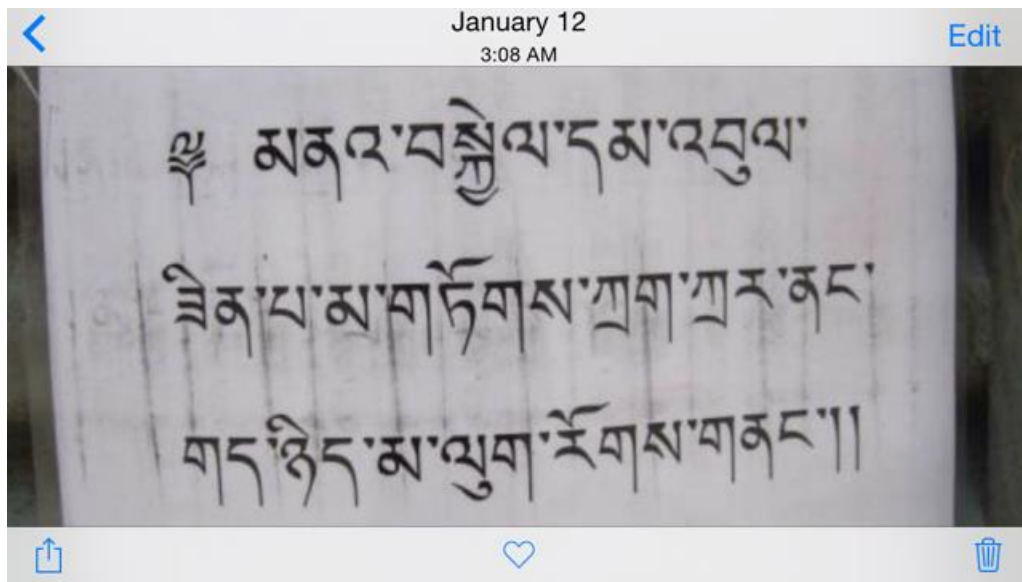 January 12
Edit
3:08 AM
༄ མནའ་བསྐྱེལ་དམ་འབུལ་
ཟིན་པ་མ་གཏོགས་ཀྲག་ཀྲར་ནང་
གད་ཉིད་མ་ལུག་རོགས་གནང་།།